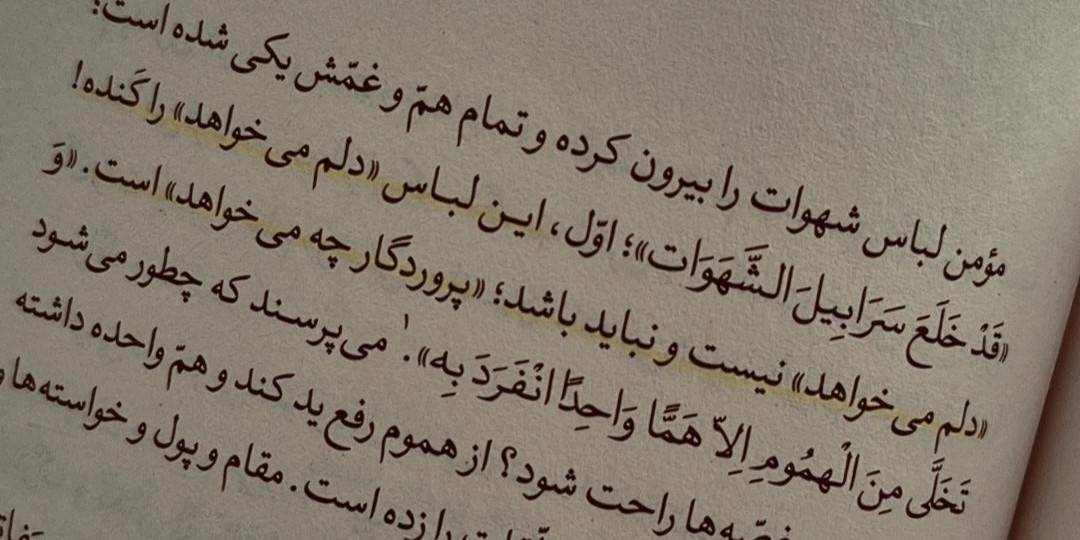 مؤمن لباس شهوات را بیرون کرده و تمام همّ و غمّش یکی شده است:
«قَدْ خَلَعَ سَرَابِيلَ الشَّهَوَات»؛ اوّل، این لباس «دلم می‌خواهد» را کَنده!
«دلم می‌خواهد» نیست و نباید باشد؛ «پروردگار چه می‌خواهد» است. «وَ
تَخَلَّى مِنَ الْهمُومِ إِلاّ هَمًّا وَاحِدًا انْفَرَدَ بِه».۱ می‌پرسند که چطور می‌شود
شود؟ از هموم رفع ید کند و همّ واحده داشته
راحت را زده است. مقام و پول و خواسته‌ها و